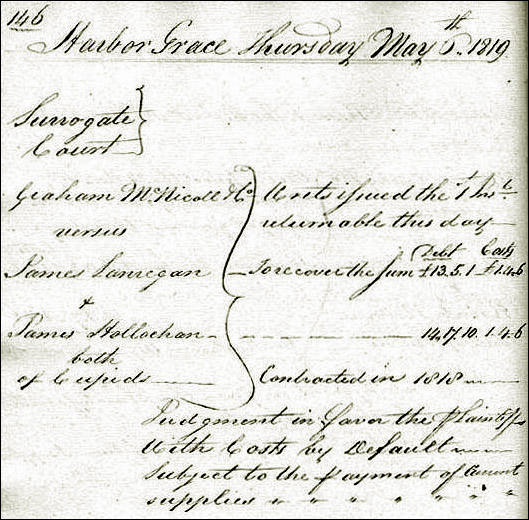 146
Harbor Grace Thursday May 6th 1819
Surrogate
Court
Graham McNicoll & Co Writs issued the 1st Inst
versus returnable this day
Debt Costs
James Lanregan To recover the Sum £13.5.1 £1.4.6
&
James Hollochan 14.17.10. 1.4.6
both
of Cupids Contracted in 1818
Judgment in favor the Plaintiffs
With Costs by Default
Subject to the payment of
supplies " " " " " "